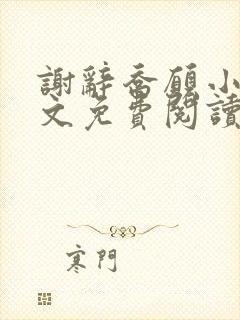 謝辭喬願小
文免費閱讀
寒門